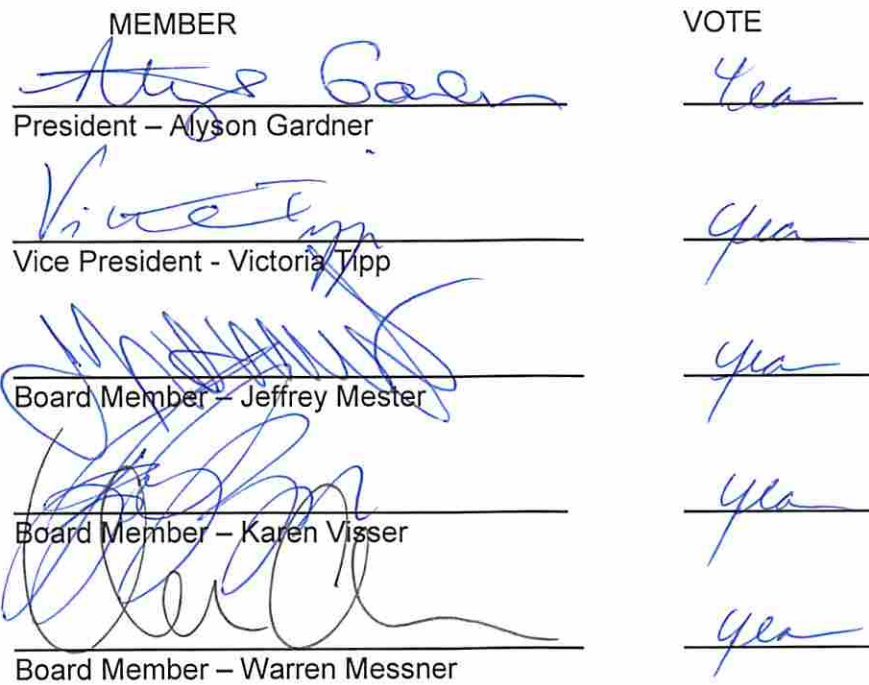 MEMBER VOTE
Alyson Gardner Yea
President – Alyson Gardner
Victoria Tipp Yea
Vice President - Victoria Tipp
Yea
Board Member – Jeffrey Mester
Yea
Board Member – Karen Visser
Yea
Board Member – Warren Messner